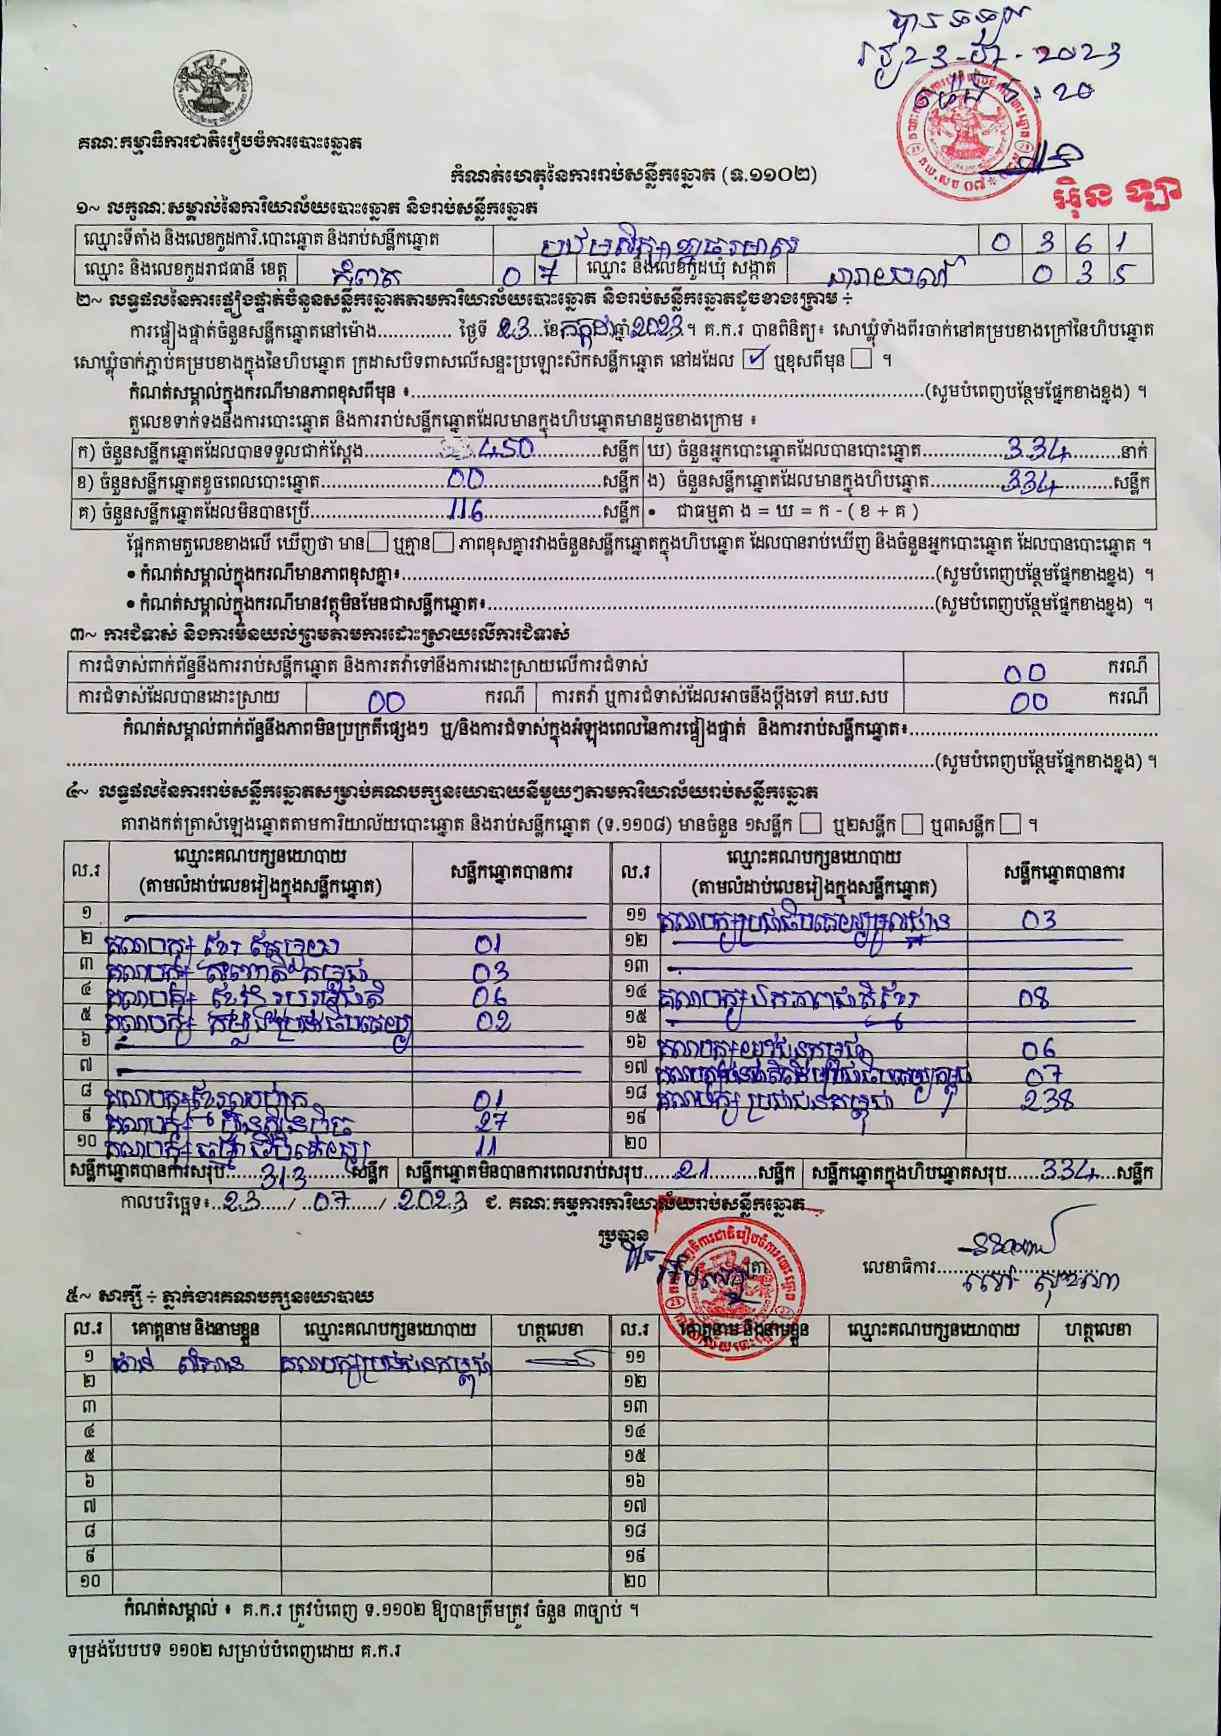 បានទទួល
ថ្ងៃ 23-07-2023
ម៉ោង : 20
អ៊ិន ឡា
គណៈកម្មាធិការជាតិរៀបចំការបោះឆ្នោត
កំណត់ហេតុនៃការរាប់សន្លឹកឆ្នោត (ទ.១១០២)
១~ លក្ខណៈសម្គាល់នៃការិយាល័យបោះឆ្នោត និងរាប់សន្លឹកឆ្នោត
ឈ្មោះទីតាំង និងលេខកូដការិ.បោះឆ្នោត និងរាប់សន្លឹកឆ្នោត 0 3 6 1
ឈ្មោះ និងលេខកូដរាជធានី ខេត្ត កំពត 0 7 ឈ្មោះ និងលេខកូដឃុំ សង្កាត់ 0 3 5
២~ លទ្ធផលនៃការផ្ទៀងផ្ទាត់ចំនួនសន្លឹកឆ្នោតតាមការិយាល័យបោះឆ្នោត និងរាប់សន្លឹកឆ្នោតដូចខាងក្រោម ÷
ការផ្ទៀងផ្ទាត់ចំនួនសន្លឹកឆ្នោតនៅម៉ោង.............. ថ្ងៃទី 23 ខែ កក្កដា ឆ្នាំ 2023 ។ គ.ក.រ បានពិនិត្យ៖ សោឃ្លុំទាំងពីរចាក់នៅគម្របខាងក្រៅនៃហិបឆ្នោត
សោឃ្លុំចាក់ភ្ជាប់គម្របខាងក្នុងនៃហិបឆ្នោត ក្រដាសបិទពាសលើសន្ទះប្រឡោះស៊កសន្លឹកឆ្នោត នៅដដែល ☑ ឬខុសពីមុន ☐ ។
កំណត់សម្គាល់ក្នុងករណីមានភាពខុសពីមុន ៖..............(សូមបំពេញបន្ថែមផ្នែកខាងខ្នង) ។
តួលេខទាក់ទងនឹងការបោះឆ្នោត និងការរាប់សន្លឹកឆ្នោតដែលមានក្នុងហិបឆ្នោតមានដូចខាងក្រោម ៖
ក) ចំនួនសន្លឹកឆ្នោតដែលបានទទួលជាក់ស្តែង 450 សន្លឹក ឃ) ចំនួនអ្នកបោះឆ្នោតដែលបានបោះឆ្នោត 334 នាក់
ខ) ចំនួនសន្លឹកឆ្នោតខូចពេលបោះឆ្នោត 00 សន្លឹក ង) ចំនួនសន្លឹកឆ្នោតដែលមានក្នុងហិបឆ្នោត 334 សន្លឹក
គ) ចំនួនសន្លឹកឆ្នោតដែលមិនបានប្រើ 116 សន្លឹក • ជាធម្មតា ង = ឃ = ក - ( ខ + គ )
ផ្អែកតាមតួលេខខាងលើ ឃើញថា មាន ☐ ឬគ្មាន ☐ ភាពខុសគ្នារវាងចំនួនសន្លឹកឆ្នោតក្នុងហិបឆ្នោត ដែលបានរាប់ឃើញ និងចំនួនអ្នកបោះឆ្នោត ដែលបានបោះឆ្នោត ។
• កំណត់សម្គាល់ក្នុងករណីមានភាពខុសគ្នា៖..............(សូមបំពេញបន្ថែមផ្នែកខាងខ្នង) ។
• កំណត់សម្គាល់ក្នុងករណីមានវត្ថុមិនមែនជាសន្លឹកឆ្នោត៖..............(សូមបំពេញបន្ថែមផ្នែកខាងខ្នង) ។
៣~ ការជំទាស់ និងការមិនយល់ព្រមតាមការដោះស្រាយលើការជំទាស់
ការជំទាស់ពាក់ព័ន្ធនឹងការរាប់សន្លឹកឆ្នោត និងការតវ៉ាទៅនឹងការដោះស្រាយលើការជំទាស់ 00 ករណី
ការជំទាស់ដែលបានដោះស្រាយ 00 ករណី ការតវ៉ា ឬការជំទាស់ដែលអាចនឹងប្តឹងទៅ គឃ.សប 00 ករណី
កំណត់សម្គាល់ពាក់ព័ន្ធនឹងភាពមិនប្រក្រតីផ្សេងៗ ឬ/និងការជំទាស់ក្នុងអំឡុងពេលនៃការផ្ទៀងផ្ទាត់ និងការរាប់សន្លឹកឆ្នោត៖..............
..............(សូមបំពេញបន្ថែមផ្នែកខាងខ្នង) ។
៤~ លទ្ធផលនៃការរាប់សន្លឹកឆ្នោតសម្រាប់គណបក្សនយោបាយនីមួយៗតាមការិយាល័យរាប់សន្លឹកឆ្នោត
តារាងកត់ត្រាសំឡេងឆ្នោតតាមការិយាល័យបោះឆ្នោត និងរាប់សន្លឹកឆ្នោត (ទ.១១០៨) មានចំនួន ១សន្លឹក ☐ ឬ២សន្លឹក ☐ ឬ៣សន្លឹក ☐ ។
ល.រ ឈ្មោះគណបក្សនយោបាយ (តាមលំដាប់លេខរៀងក្នុងសន្លឹកឆ្នោត) សន្លឹកឆ្នោតបានការ ល.រ ឈ្មោះគណបក្សនយោបាយ (តាមលំដាប់លេខរៀងក្នុងសន្លឹកឆ្នោត) សន្លឹកឆ្នោតបានការ
១ ១១ គណបក្សប្រជាធិបតេយ្យមូលដ្ឋាន 03
២ គណបក្ស ខ្មែរ តែមួយ 01 ១២
៣ គណបក្ស សញ្ជាតិ កម្ពុជា 03 ១៣
៤ គណបក្ស ខ្មែររួបរួមជាតិ 06 ១៤ គណបក្ស ឯកភាពជាតិខ្មែរ 08
៥ គណបក្ស កម្លាំងប្រជាធិបតេយ្យ 02 ១៥
៦ ១៦ គណបក្សយុវជនកម្ពុជា 06
៧ ១៧ 07
៨ គណបក្ស 01 ១៨ គណបក្ស ប្រជាជនកម្ពុជា 238
៩ គណបក្ស 27 ១៩
១០ គណបក្ស ធម្មាធិបតេយ្យ 11 ២០
សន្លឹកឆ្នោតបានការសរុប 313 សន្លឹក សន្លឹកឆ្នោតមិនបានការពេលរាប់សរុប 21 សន្លឹក សន្លឹកឆ្នោតក្នុងហិបឆ្នោតសរុប 334 សន្លឹក
កាលបរិច្ឆេទ៖ 23 / 07 / 2023 ជ. គណៈកម្មការការិយាល័យរាប់សន្លឹកឆ្នោត
ប្រធាន លេខាធិការ
៥~ សាក្សី ÷ ភ្នាក់ងារគណបក្សនយោបាយ
ល.រ គោត្តនាម និងនាមខ្លួន ឈ្មោះគណបក្សនយោបាយ ហត្ថលេខា ល.រ គោត្តនាម និងនាមខ្លួន ឈ្មោះគណបក្សនយោបាយ ហត្ថលេខា
១ គណបក្សប្រជាជនកម្ពុជា ១១
២ ១២
៣ ១៣
៤ ១៤
៥ ១៥
៦ ១៦
៧ ១៧
៨ ១៨
៩ ១៩
១០ ២០
កំណត់សម្គាល់ ៖ គ.ក.រ ត្រូវបំពេញ ទ.១១០២ ឱ្យបានត្រឹមត្រូវ ចំនួន ៣ច្បាប់ ។
ទម្រង់បែបបទ ១១០២ សម្រាប់បំពេញដោយ គ.ក.រ